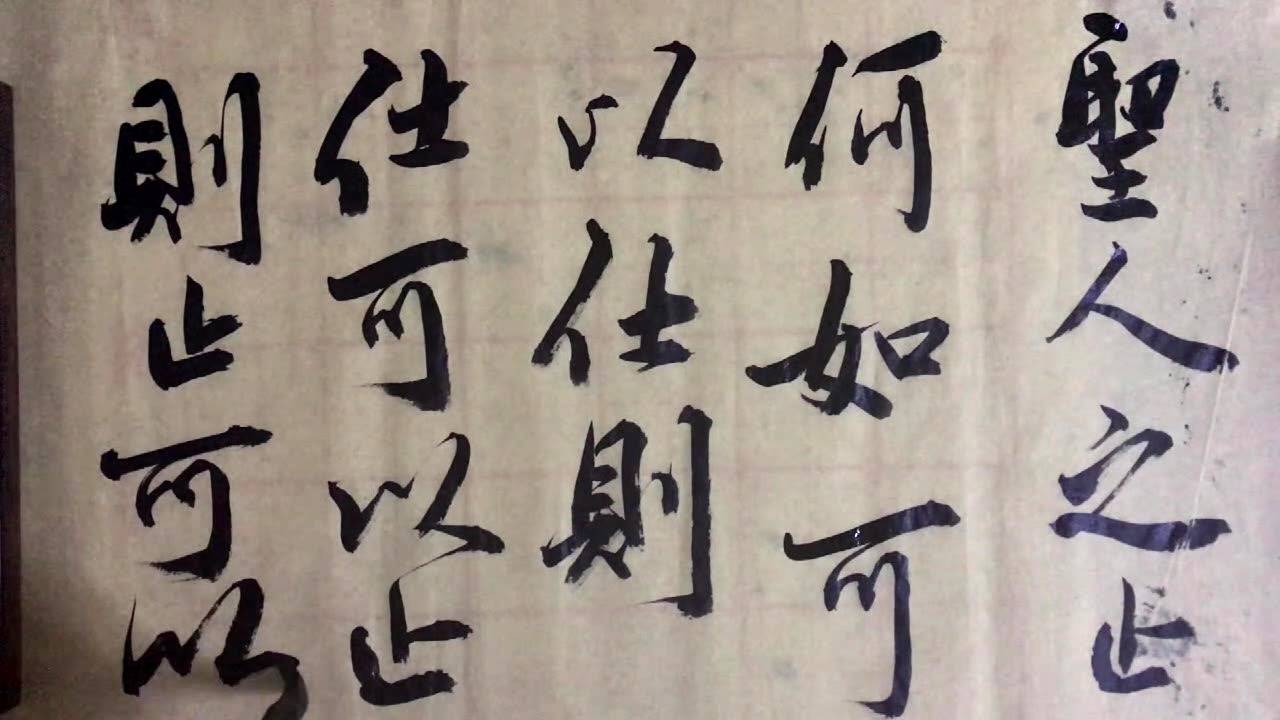 聖人之止
何如可
以仕則
仕可以止
則止可以